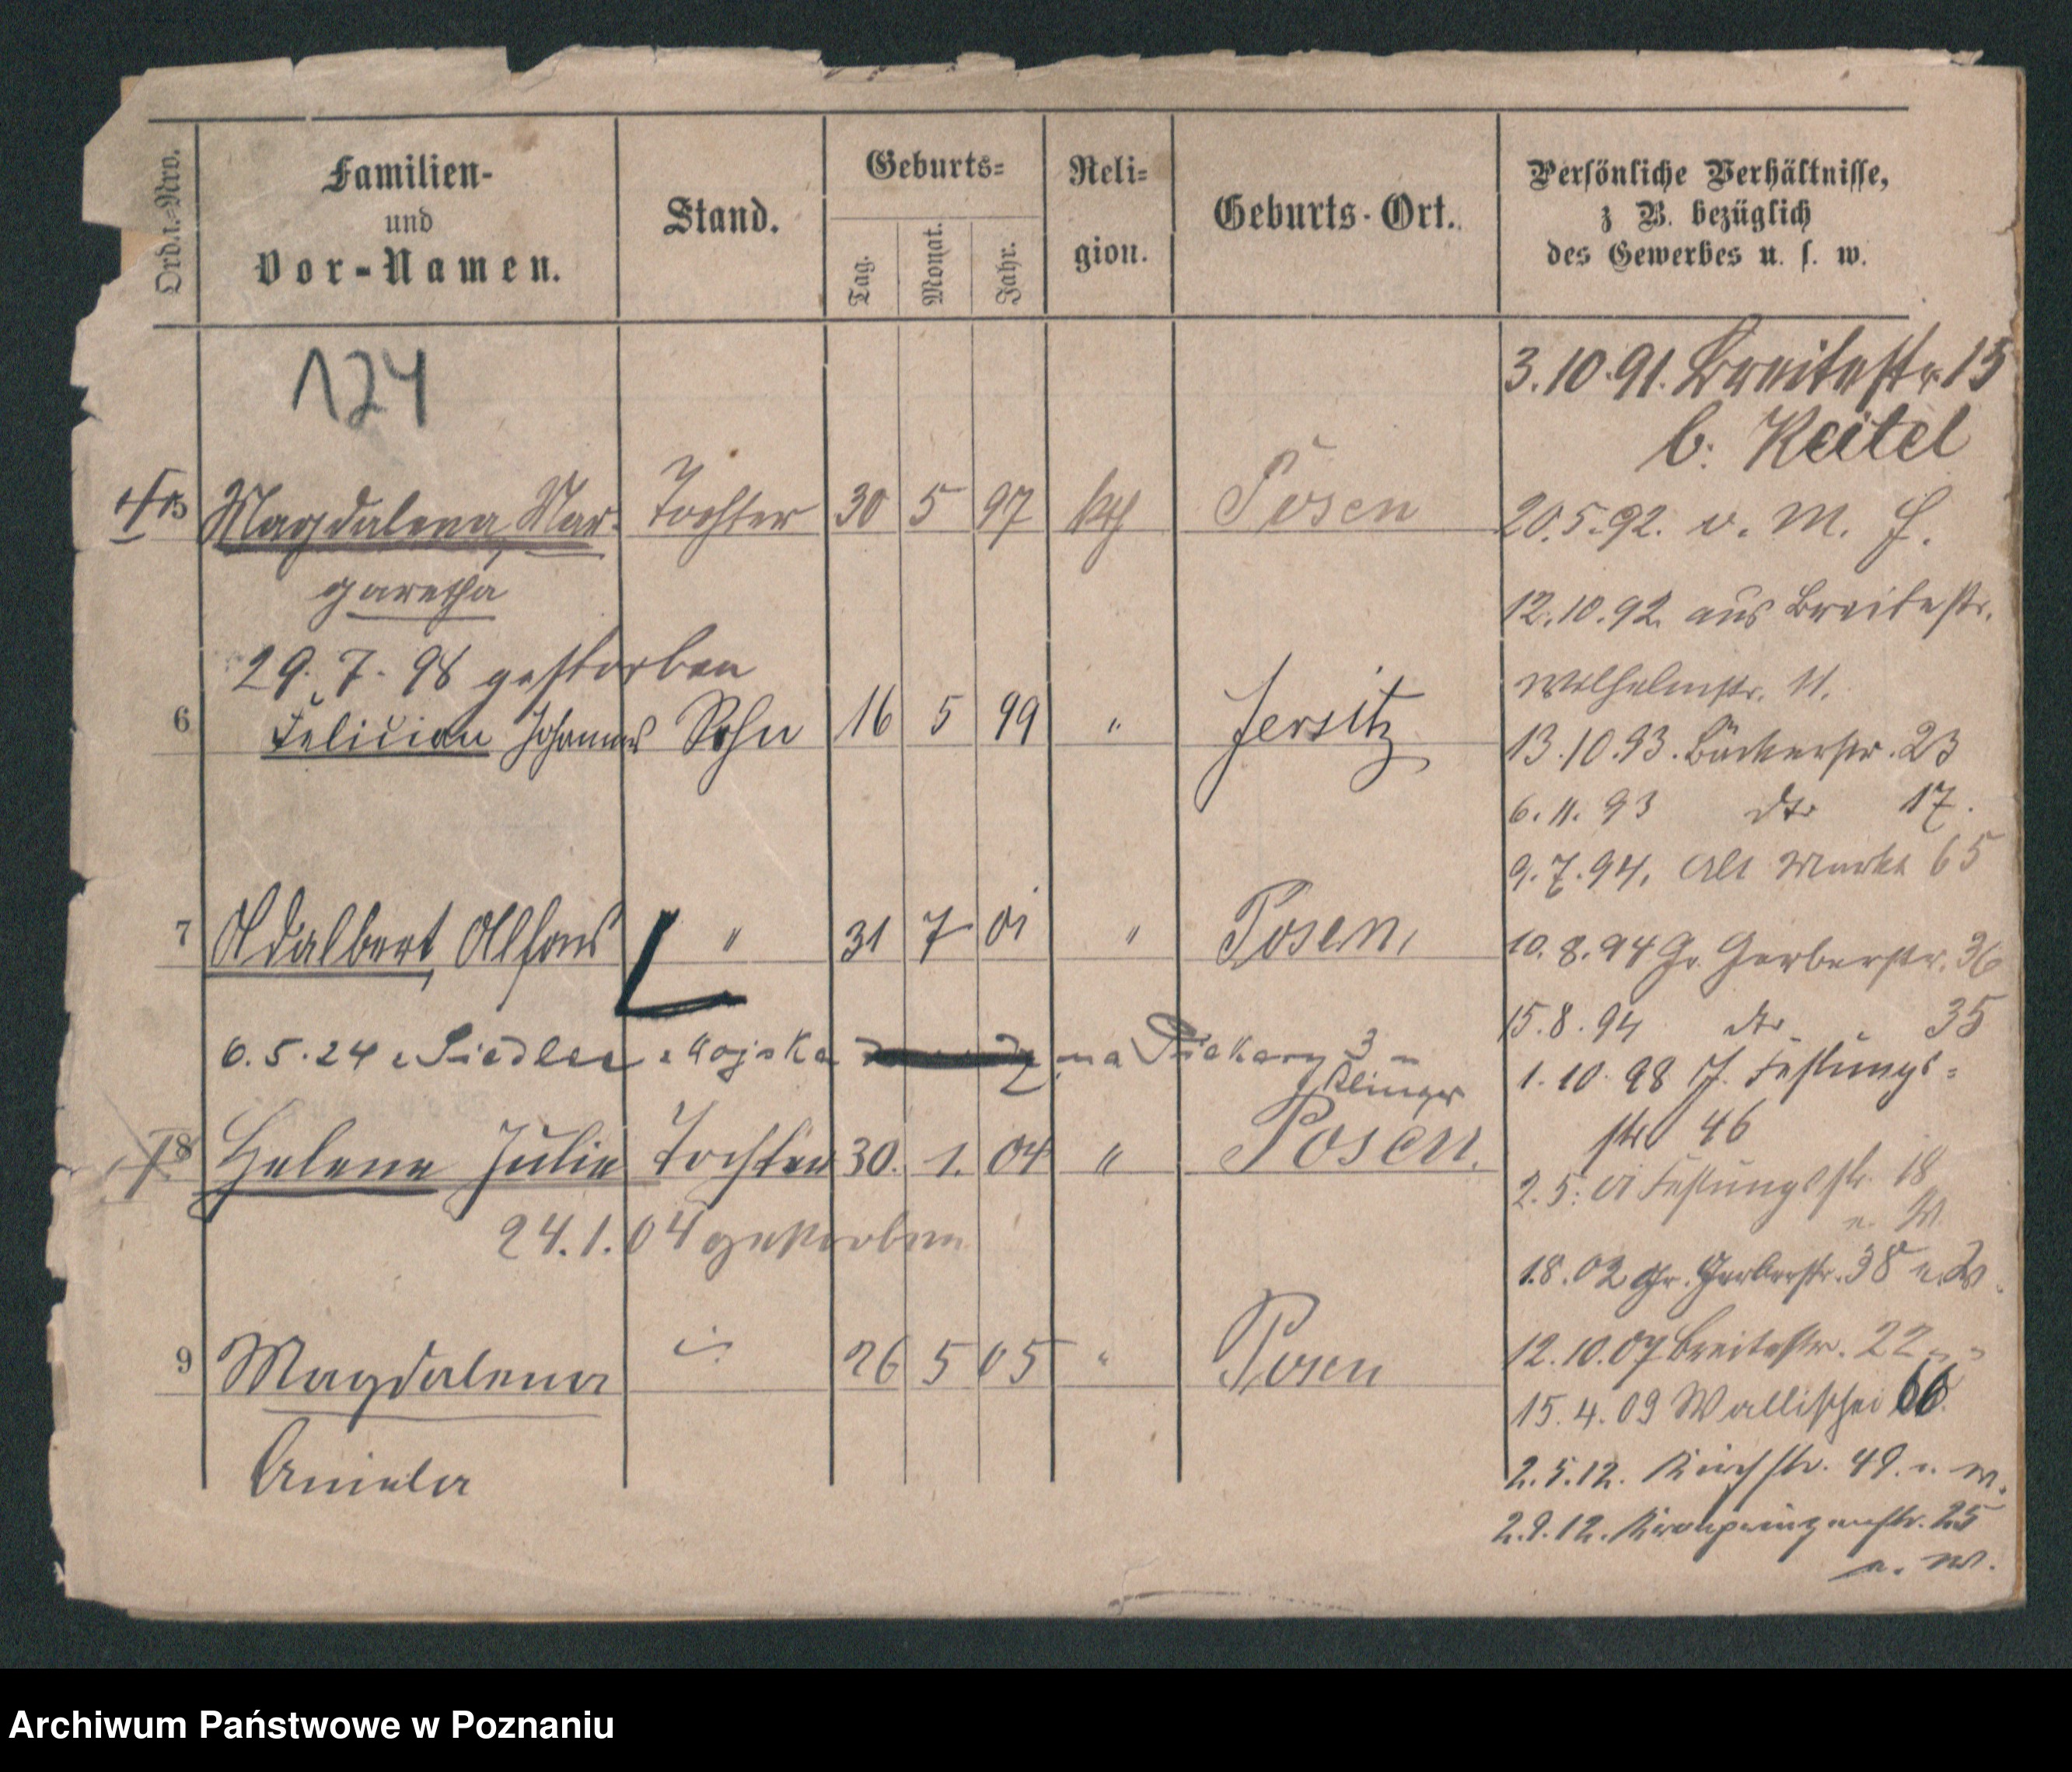 Ord.=Nro.
Familien-
und
Vor-Namen.
Stand.
Geburts=
Tag.
Monat.
Jahr.
Reli=
gion.
Geburts-Ort.
Persönliche Verhältnisse,
z B. bezüglich
des Gewerbes u. s. w.
124
3.10.91. Breitestr 15
b. Keitel
5 Magdalena, Mar- Tochter 30 5 97 kth Posen
garetha
20.5.92. v. M. F.
12.10.92. aus Breitestr.
29.7.98 gestorben
Wilhelmstr. 11.
6 Felician Johannes Sohn 16 5 99 " Jersitz
13.10.93. Bäckerstr. 23
6.11.93 dto 17.
9.7.94. Alt Markt 65
7 Adalbert, Alfons " 31 7 01 " Posen,
10.8.94 Gr. Gerberstr. 36
15.8.94 dto 35
6.5.24 z Siedlec z wojska na Piekary 3
Klinger
1.10.98 Festungs=
str 46
8 Helene Julie Tochter 30. 1. 04 " Posen.
2.5. 01 Festungsstr. 18
n. W
24.1.04 gestorben
1.8.02 Gr. Gerberstr. 38 n. W.
9 Magdalena 26 5 05 " Posen
12.10.07 Breitestr. 22
15.4.09 Wallischei 66.
Aniela
2.5.12. Kirchstr. 49. n. W.
2.9.12. Kronprinzenstr. 25
n. W.
Archiwum Państwowe w Poznaniu